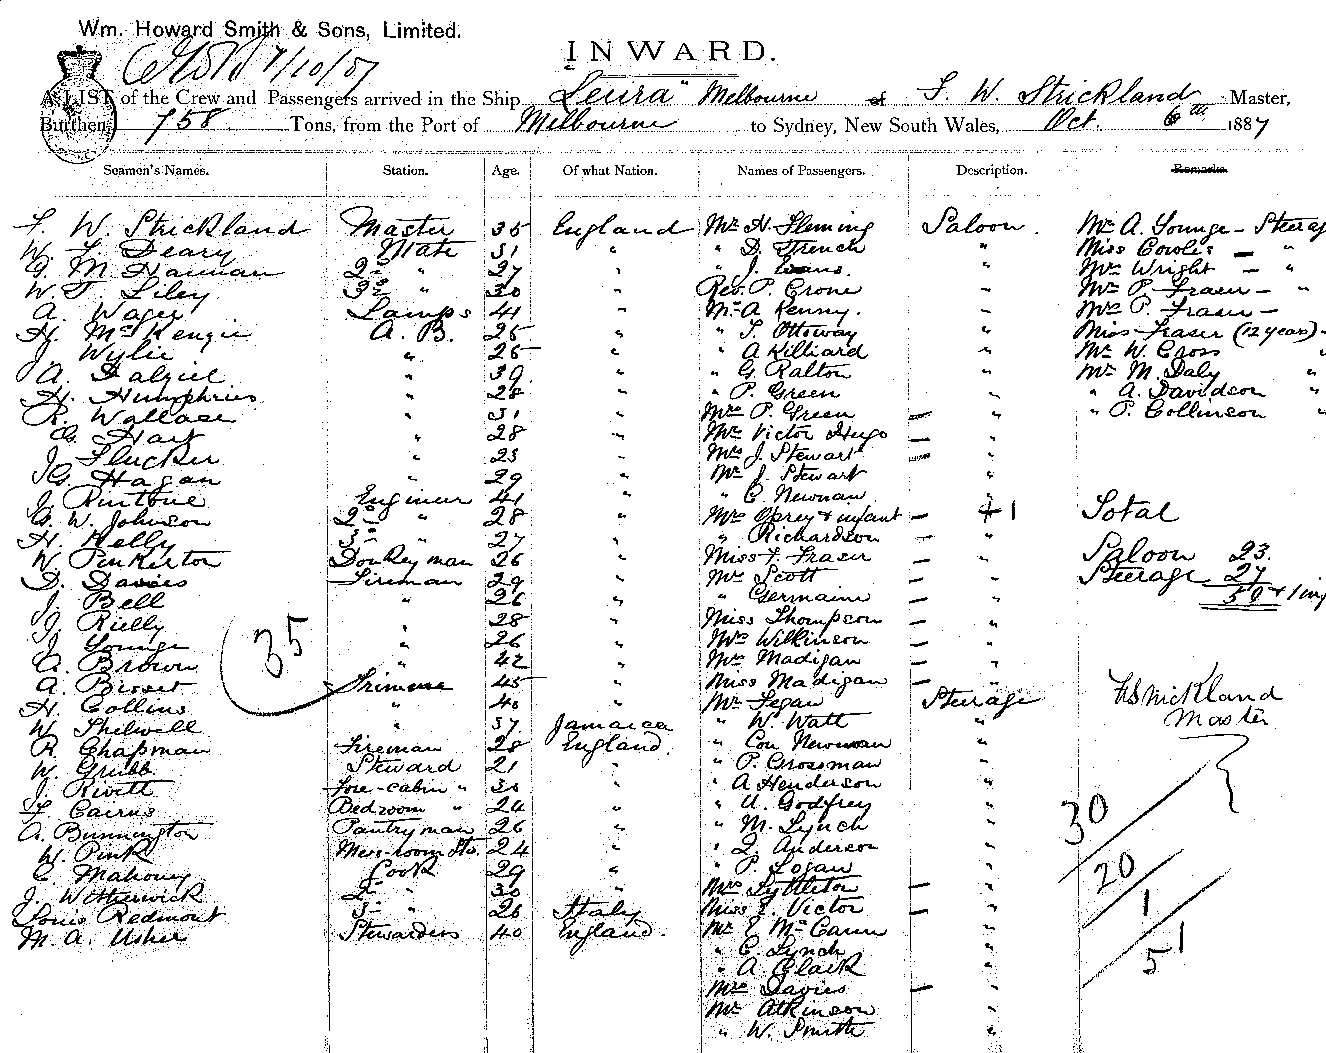 Wm. Howard Smith & Sons, Limited.
7/10/87
INWARD.
A LIST of the Crew and Passengers arrived in the Ship "Leura" Melbourne of F. W. Strickland Master,
Burthen 758 Tons, from the Port of Melbourne to Sydney, New South Wales, Oct. 6th 1887
Seamen's Names. Station. Age. Of what Nation. Names of Passengers. Description. Remarks.
F. W. Strickland Master 35 England Mr H. Fleming Saloon. Mr A. Younge - Steerag
W. F. Deary Mate 31 " " D. French " Miss Cowles - "
G. M. Hannan 2nd " 27 " " J. Evans. " Mr Wright - "
W. J. Liley 3rd " 30 " Rev. P. Crone " Mr P. Fraser - "
A. Wager Lamps 41 " Mr A Kenny. " Mrs P. Fraser -
H. McKenzie A. B. 25 " " T. Ottoway " Miss Fraser (12 years) -
J. Wylie " 25 " " A Killiard " Mr W. Cross "
A. Dalziel " 39 " " G. Ralton " Mr M. Daly "
H. Humphries " 28 " " P. Green " " A. Davidson "
R. Wallace " 31 " Mrs P. Green - " " P. Collinson "
G. Hart " 28 " Mr Victor Hugo - "
J. Flucker " 23 " Mrs J. Stewart - "
G. Hagan " 29 " Mr J. Stewart "
J. Rintoue Engineer 41 " " C. Newman "
G. W. Johnson 2nd " 28 " Mrs Oprey & infant - " + 1 Total
H. Kelly 3rd " 27 " " Richardson - "
W. Penkerton Donkeyman 26 " Miss F. Fraser - " Saloon 23.
D. Davies Fireman 29 " Mrs Scott - " Steerage 27
J. Bell " 26 " " Germaine - " 50 & 1 inf
J. Rielly " 28 " Miss Thompson - "
J. Younge " 26 " Mrs Wilkinson - "
A. Brown " 42 " Mrs Madigan - "
35
A. Bisset Trimmer 45 " Miss Madigan - "
H. Collins " 40 " Mr Fegan Steerage FWStrickland
W. Shelwell " 37 Jamaica " W. Watt " Master
R. Chapman Fireman 28 England. " Con Newman "
W. Grubb Steward 21 " " P. Grossman "
J. Rivett Fore-cabin " 30 " " A Henderson "
F. Cairns Bedroom " 24 " " U. Godfrey " 30
A. Bunnington Pantryman 26 " " M. Lynch "
W. Pink Mess-room Std. 24 " " J. Anderson "
C. Mahoney Cook 29 " " P. Logan " 20
J. Witherwick 2nd " 30 " Mrs Lyttleton - "
Louis Redmont 3rd " 26 Italy Miss F. Victor - " 1
M. A. Usher Stewardess 40 England. Mr E McCann "
" C. Lynch " 51
" A Clark "
Mrs Davies - "
Mr Atkinson "
" W. Smith "